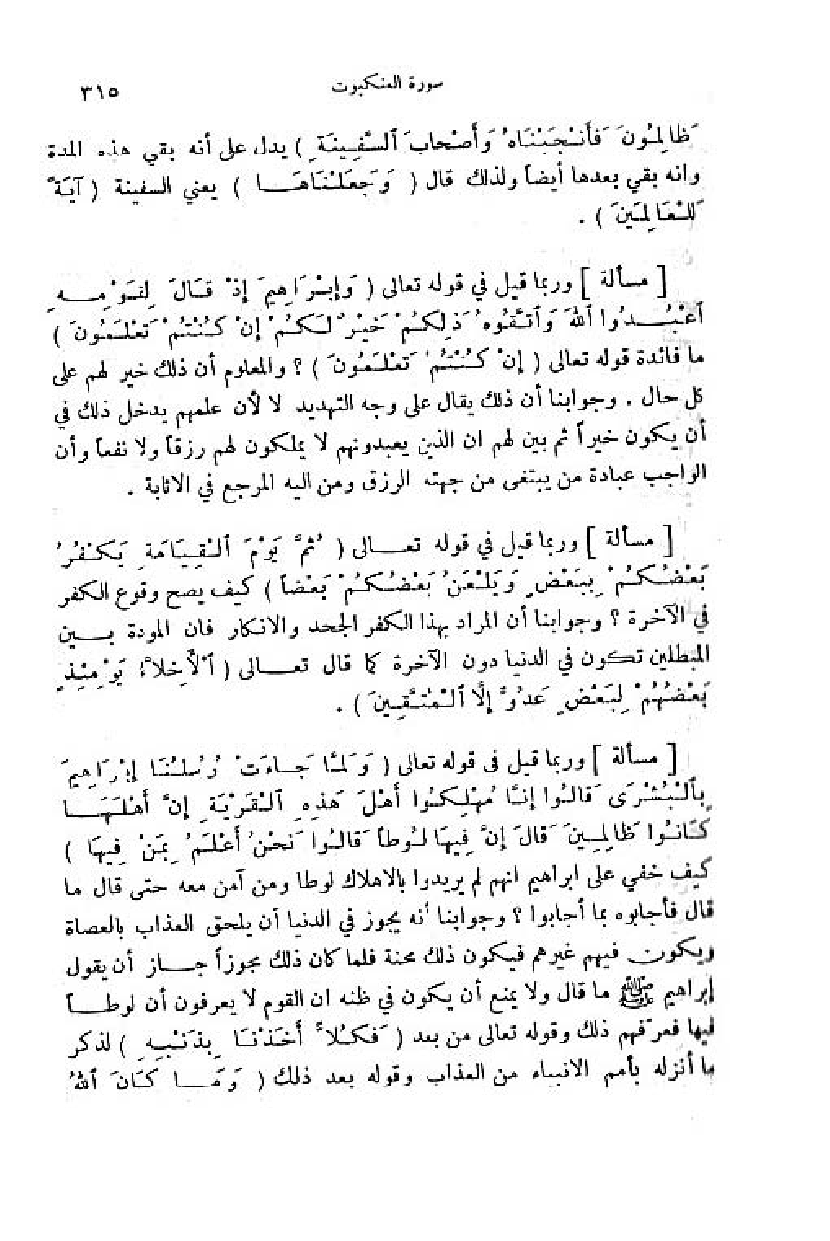 سورة العنكبوت ٣١٥
ظَالِمُونَ فَأَنْجَيْنَاهُ وَأَصْحَابَ السَّفِينَةِ ) يدل على أنه بقي هذه المدة
وانه بقي بعدها أيضاً ولذلك قال ( وَجَعَلْنَاهَا ) يعني السفينة ( آيَةً
لِلْعَالَمِينَ ) .
[ مسألة ] وربما قيل في قوله تعالى ( وَإِبْرَاهِيمَ إِذْ قَالَ لِقَوْمِهِ
اعْبُدُوا اللهَ وَاتَّقُوهُ ذَلِكُمْ خَيْرٌ لَكُمْ إِنْ كُنْتُمْ تَعْلَمُونَ )
ما فائدة قوله تعالى ( إِنْ كُنْتُمْ تَعْلَمُونَ ) ؟ والمعلوم أن ذلك خير لهم على
كل حال . وجوابنا أن ذلك يقال على وجه التهديد لا لأن علمهم يدخل ذلك في
أن يكون خيراً ثم بين لهم ان الذين يعبدونهم لا يملكون لهم رزقاً ولا نفعاً وأن
الواجب عبادة من يبتغى من جهته الرزق ومن اليه المرجع في الاثابة .
[ مسألة ] وربما قيل في قوله تعالى ( ثُمَّ يَوْمَ الْقِيَامَةِ يَكْفُرُ
بَعْضُكُمْ بِبَعْضٍ وَيَلْعَنُ بَعْضُكُمْ بَعْضاً ) كيف يصح وقوع الكفر
في الآخرة ؟ وجوابنا أن المراد بهذا الكفر الجحد والانكار فان المودة بين
المبطلين تكون في الدنيا دون الآخرة كما قال تعالى ( الْأَخِلَّاءُ يَوْمَئِذٍ
بَعْضُهُمْ لِبَعْضٍ عَدُوٌّ إِلَّا الْمُتَّقِينَ ) .
[ مسألة ] وربما قيل في قوله تعالى ( وَلَمَّا جَاءَتْ رُسُلُنَا إِبْرَاهِيمَ
بِالْبُشْرَى قَالُوا إِنَّا مُهْلِكُوا أَهْلَ هَذِهِ الْقَرْيَةِ إِنَّ أَهْلَهَا
كَانُوا ظَالِمِينَ قَالَ إِنَّ فِيهَا لُوطاً قَالُوا نَحْنُ أَعْلَمُ بِمَنْ فِيهَا )
كيف خفي على ابراهيم انهم لم يريدوا بالاهلاك لوطا ومن آمن معه حتى قال ما
قال فأجابوه بما أجابوا ؟ وجوابنا أنه يجوز في الدنيا أن يلحق العذاب بالعصاة
ويكون فيهم غيرهم فيكون ذلك محنة فلما كان ذلك مجوزاً جاز أن يقول
إبراهيم ﷺ ما قال ولا يمنع أن يكون في ظنه ان القوم لا يعرفون أن لوطاً
فيها فعرفهم ذلك وقوله تعالى من بعد ( فَكُلاًّ أَخَذْنَا بِذَنْبِهِ ) لذكر
ما أنزله بأمم الانبياء من العذاب وقوله بعد ذلك ( وَمَا كَانَ اللهُ